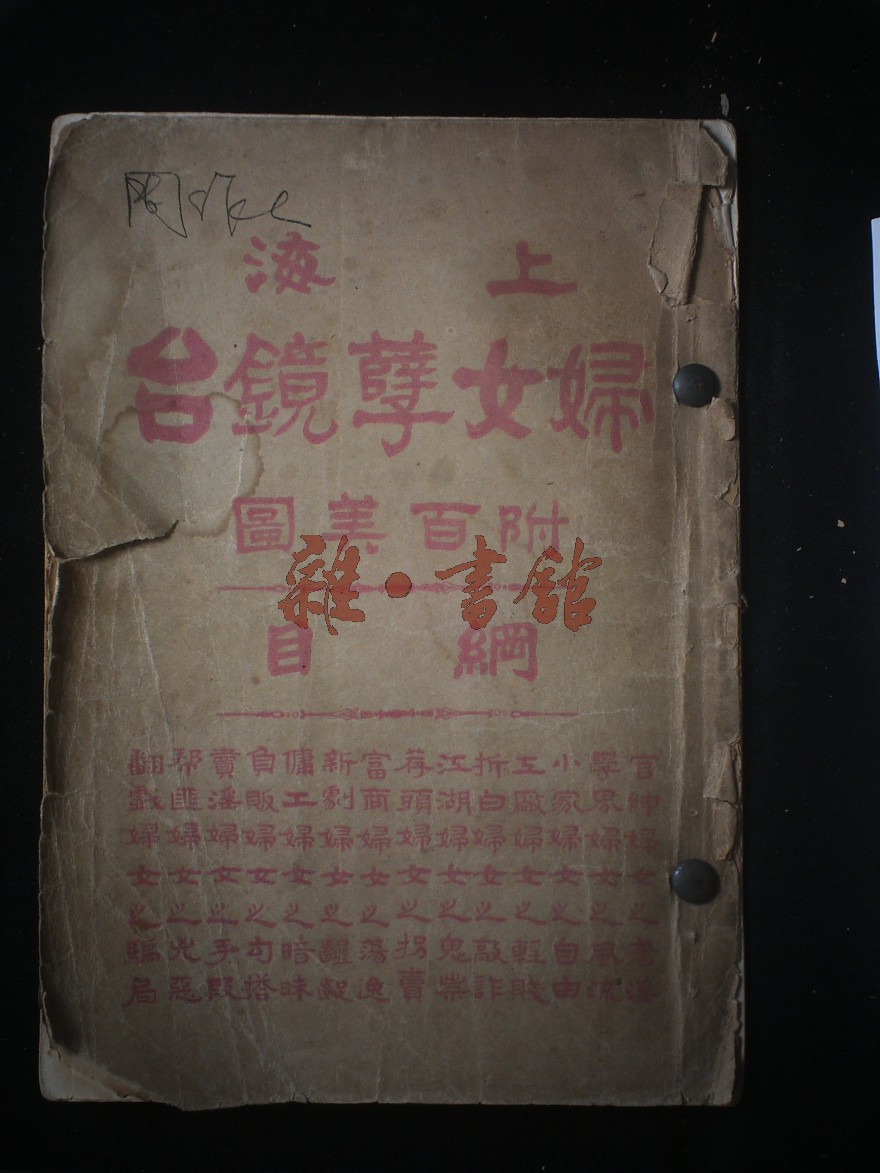 上海
婦女孽鏡台
附百美圖
雜·書館
綱目
官紳婦女之
學界婦女之風流
小家婦女之自由
工廠婦女之輕賤
折白婦女之敲詐
江湖婦女之鬼祟
荐頭婦女之拐賣
富商婦女之蕩逸
新劇婦女之齷齪
傭工婦女之暗昧
負販婦女之勾搭
賣淫婦女之手段
帮匪婦女之兇惡
翻戲婦女之騙局